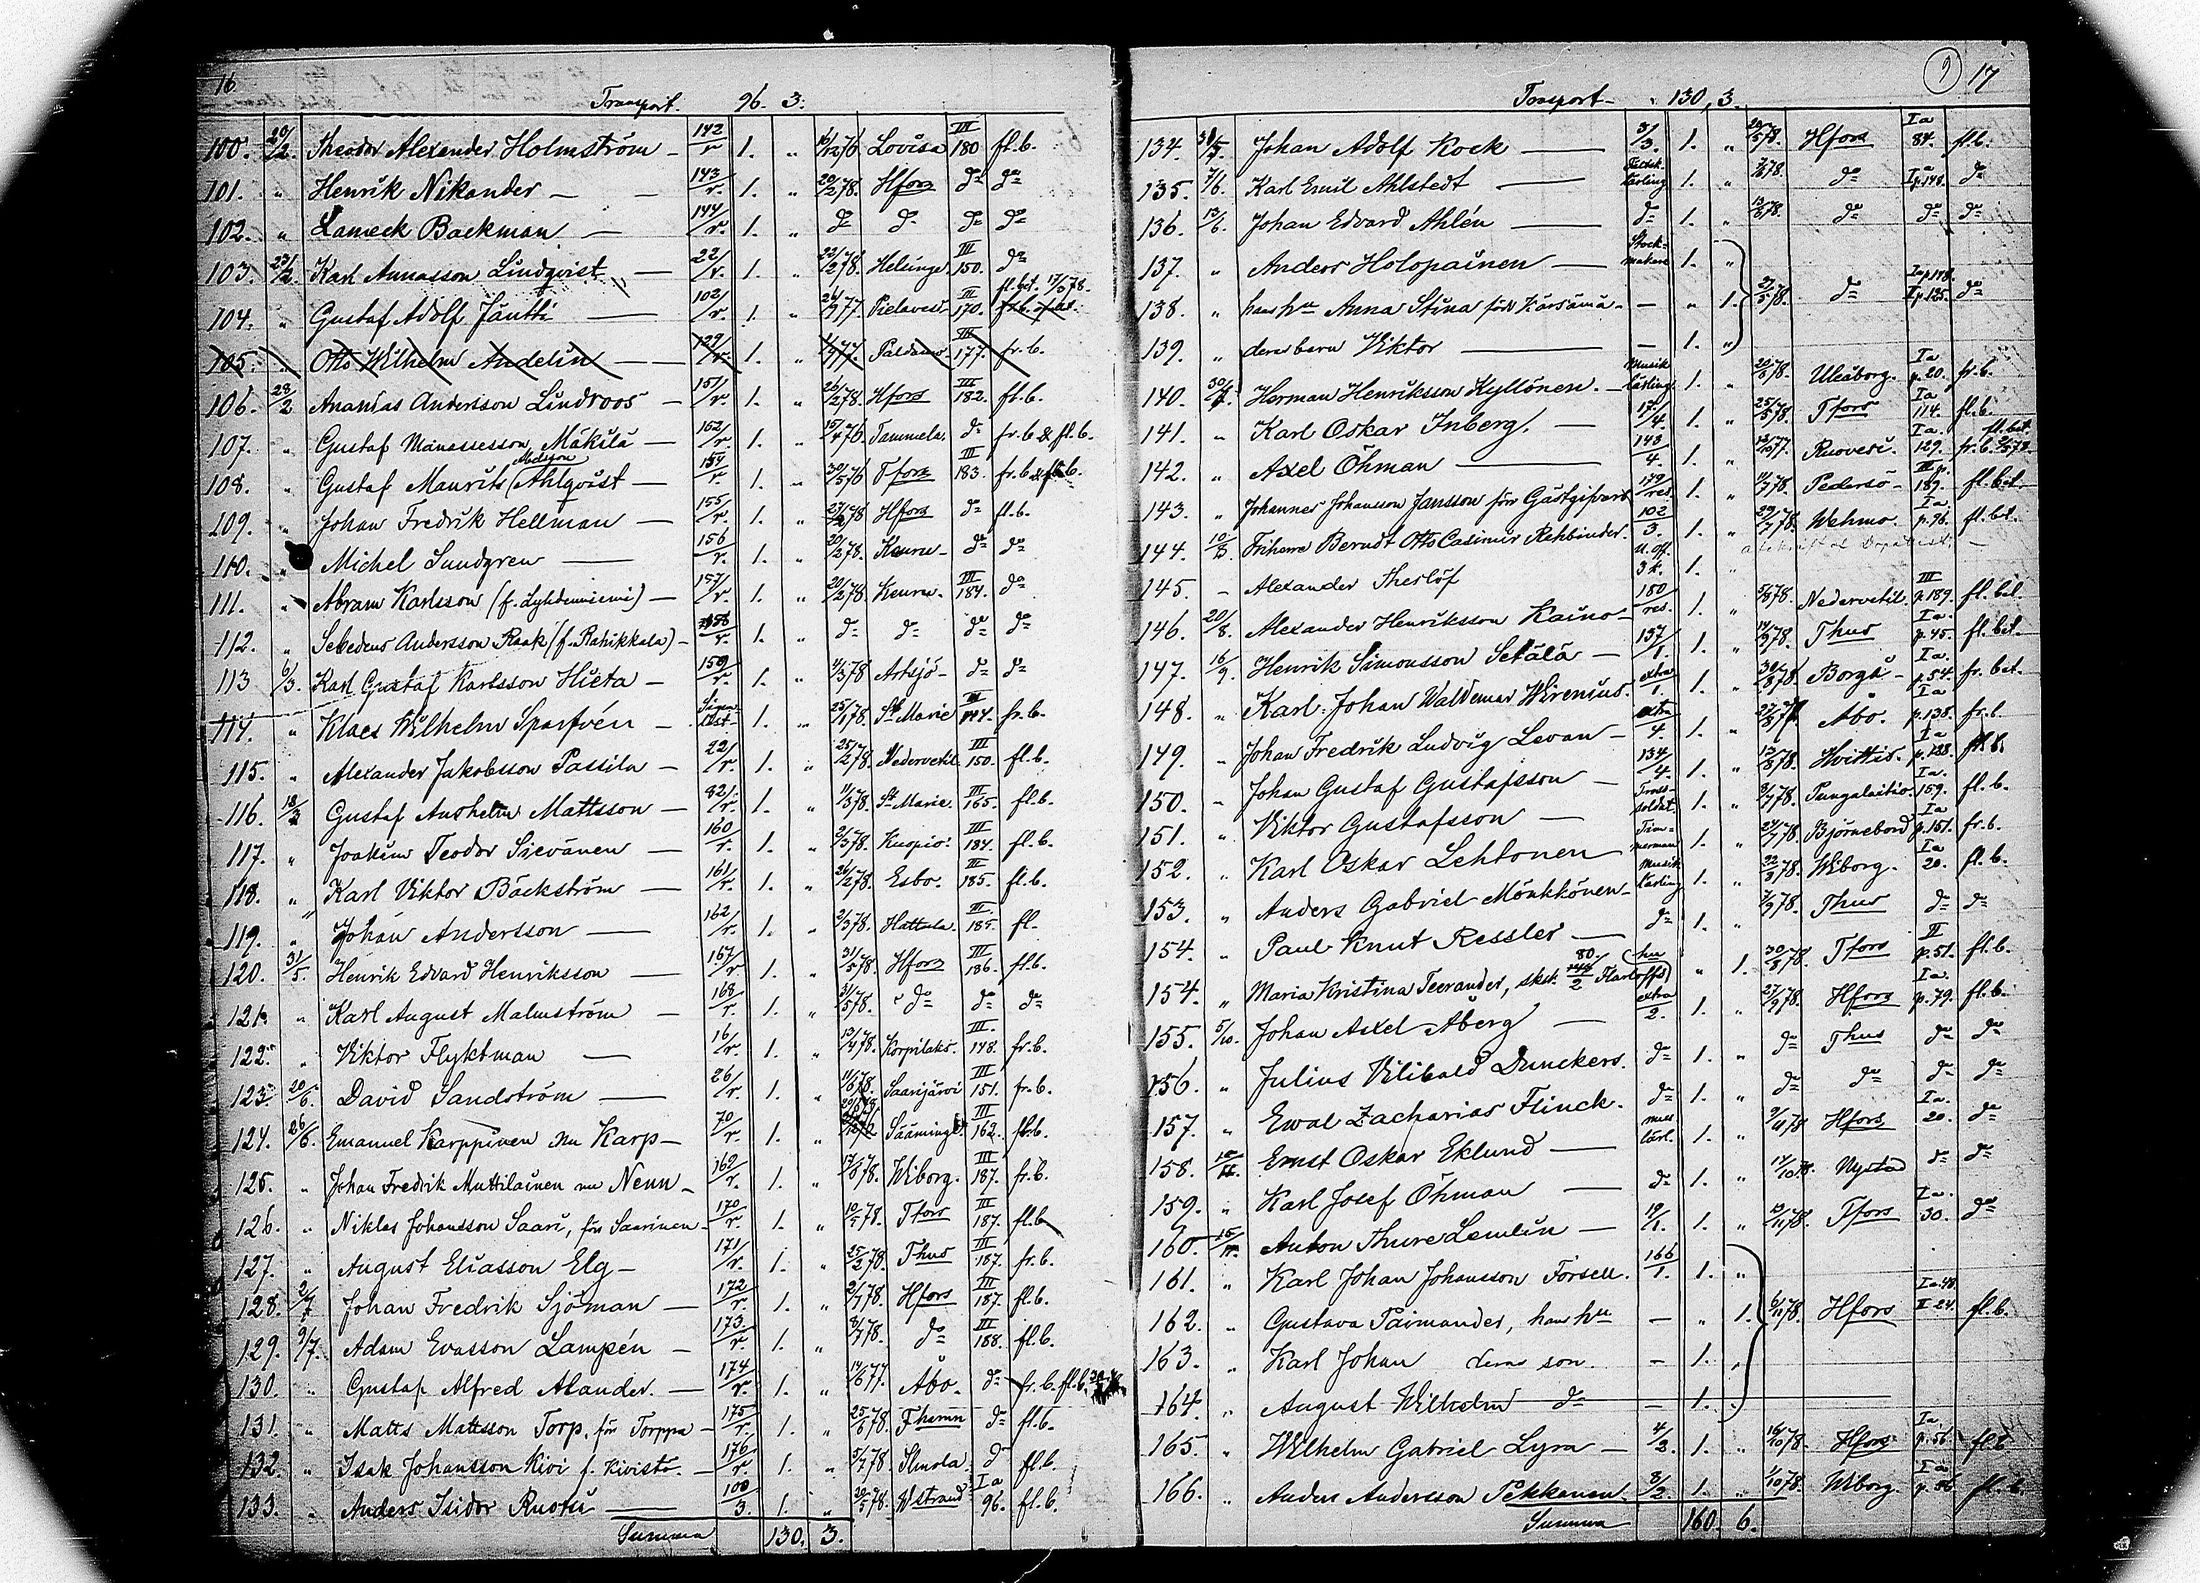 16
Transport. 96. 3.
100. 20/2. Theodor Alexander Holmström – 142/r 1. „ 76 Lovisa III 180 fl.b.
101. „ Henrik Nikander – 143/r. 1. „ 20/2 78. Hfors do do
102. „ Lameck Backman – 144/r. 1. „ do do do do
103. 23/2. Karl Annasson Lindqvist – 22/r. 1. „ 22/2 78. Helsinge III 150. do
104. „ Gustaf Adolf Jäntti – 102/r. 1. „ 77. Pielavesi III 170. fl.bet. 78.
105. „ Otto Wilhelm Andelin – 129/r. 1. „ 77. Paldamo III 177. fr.b.
106. 28/2 Ananias Andersson Lindroos – 151/r. 1. „ 26/2 78. Hfors III 182. fl.b.
107. „ Gustaf Manassesson Mäkilä – 152/r. 1. „ 15/4 76. Tammela. do fr.b & fl.b.
108. „ Gustaf Maurits Ahlqvist – 154/r. 1. „ 30/5 76 Tfors III 183. fr.b & fl.b.
109. „ Johan Fredrik Hellman – 155/r. 1. „ 78 Hfors do fl.b.
110. „ Michel Sundgren – 156/r. 1. „ 20/2 78. Keuru – do do
111. „ Abram Karlsson – 157/r. 1. „ 20/2 78. Keuru – III 184. do
112. „ Sebedeus Andersson Raak (f. Rahikkala) – 158/r. 1. „ do do do do
113 6/3. Karl Gustaf Karlsson Hieta – 159/r. 1. „ 4/3 78 Artsjö – do do
114. „ Klaes Wilhelm Sparfvén – 1. „ 25/1 78. St Marie III fr.b.
115. „ Alexander Jakobsson Passila – 22/r. 1. „ 25/2 78. Nedervetil III 150. fl.b.
116. 18/3 Gustaf Anshelm Mattsson – 82/r. 1. „ 11/3 78. St Marie. III 165. fl.b.
117. „ Joakim Teodor Sievänen – 160/r. 1. „ 2/3 78. Kuopio. III 184. fl.b.
118. „ Karl Viktor Bäckström – 161/r. 1. „ 26/2 78. Esbo. III 185. fl.b.
119. „ Johan Andersson – 162/r. 1. „ 2/3 78. Hattula. III 185. fl.
120. 31/5. Henrik Edvard Henriksson – 167/r 1. „ 31/5 78. Hfors III 186. fl.b.
121. „ Karl August Malmström – 168/r. 1. „ 31/5 78. do do do
122. „ Viktor Flyktman – 16/r. 1. „ 13/4 78. Korpilaks. III. 148. fr.b.
123. 20/6. David Sandström – 26/r. 1. „ 11/6 78. Saarijärvi III 151. fr.b.
124. 26/6. Emanuel Karppinen nu Karp – 70/r. 1. „ Sääminge III 162. fl.b.
125. „ Johan Fredrik Muttilainen nu Nenn – 169/r. 1. „ 78. Wiborg. III 187. fr.b.
126. „ Niklas Johansson Saari, för Saarinen – 170/r. 1. „ 10/5 78. Tfors III 187. fl.b
127. „ August Eliasson Elg – 171/r. 1. „ 25/2 78. Thus III 187. fr.b.
128. 2/7 Johan Fredrik Sjöman – 172/r. 1. „ 2/7 78. Hfors III 187. fl.b.
129. 9/7. Adam Evasson Lampén – 173/r. 1. „ 8/7 78. do III 188. fl.b.
130. „ Gustaf Alfred Alander. – 174/r. 1. „ 14/6 77. Åbo. do fr.b. fl.b.
131. „ Matts Mattsson Torp, för Torppa – 175/r. 1. „ 25/6 78. Fhamn do fl.b.
132. „ Isak Johansson Kivi f. Kivistö. – 176/r. 1. „ 5/7 78. Ilmola. do fl.b.
133. „ Anders Isidor Ruotsi – 100/3. 1. „ 29/5 78. Wstrand Ia 96. fl.b.
Summa 130. 3.
9 17
Transport – 130, 3.
134. Johan Adolf Kock – 3/3. 1. „ 78. Hfors Ia 84. fl.b.
135. 7/6. Karl Emil Ahlstedt – lärling 1. „ 78. do Ia p.148. do
136. 13/6. Johan Edvard Ahlén – do 1. „ 13/6 78. do do do
137. „ Anders Holopainen – Stockmakare 1. „
138. „ hans hu Anna Stina född Kärsämä – – „ 1. 27/5 78. do Ia p.148. II p.125. do
139. „ deras barn Viktor – – 1. „
140. Herman Henriksson Kyllönen. – Musiklärling 1. „ 78. Uleåborg. Ia p.20. fr.b.
141. „ Karl Oskar Inberg. – 17/4. 1. „ 25/5 78. Tfors Ia 114. fl.b.
142. „ Axel Öhman – 143/4. 1. „ 77. Ruovesi. Ia. 129. fr.b. fl.bet.
143. „ Johannes Johansson Jansson för Gästgifvars 179/res. 1. „ 78. Pedersö – III p. 189. fl.bet.
144. Friherre Berndt Otto Casimir Rehbinder. 102/3. 1. „ 29/7 78. Wehmo. Ia. p.96. fl.bt.
145. – Alexander Theslöf U.off. 3 k. 1. „
146. 20/8. Alexander Henriksson Kaino – 180/res. 1. „ 78. Nedervetil III p.189. fl.bet.
147. 16/9. Henrik Simonsson Setälä – 157/1. 1. „ 14/9 78. Thus Ia. p.45. fl.bet.
148. „ Karl Johan Waldemar Wirenius. extra/1. 1. „ 30/8 78. Borgå – Ia. p.54. fr.bet.
149. „ Johan Fredrik Ludvig Levan – extra/4. 1. „ Åbo. Ia p.138. fr.b.
150. „ Johan Gustaf Gustafsson – 134/4. 1. „ 78. Hvittis. Ia p.138. fl.b.
151. „ Viktor Gustafsson – Trossoldat. 1. „ 78. Pungalaitio. Ia. 159. fl.b.
152. „ Karl Oskar Lehtonen Timmerman 1. „ 24/7 78. Björneborg Ia p.151. fr.b.
153. „ Anders Gabriel Mönkkönen – Musik lärling 1. „ 22/3 78. Wiborg. Ia 20. fl.b.
154. „ Paul Knut Ressler – do 1. „ 78. Thus do do
154. „ Maria Kristina Teerander, 80. Karloffs hu „ 1. 30/8 78. Tfors II p.51. fl.b.
155. 5/10. Johan Axel Åberg – extra/2. 1. „ 27/9 78. Hfors Ia. p.79. fl.b.
156. „ Julius Vilibald Dunckers. do 1. „ do Thus do do
157. „ Ewal Zacharias Flinck. do 1. „ do do do do
158. Ernst Oskar Eklund – mus lärl. 1. „ 78 Hfors Ia. 20. do
159. „ Karl Josef Öhman – do 1. „ 78. Nystad do do
160. Anton Thure Lemlin – 19/1. 1. „ 78. Tfors Ia. 30. do
161. „ Karl Johan Johansson Forsell. 166/1. 1. „
162. „ Gustava Paimander, hans hu – „ 1. 78. Hfors Ia. 48. II 24. fl.b.
163. „ Karl Johan deras son. – 1. „
164. „ August Wilhelm do – 1. „
165. „ Wilhelm Gabriel Lyra – 4/2. 1. „ 16/10 78. Hfors Ia p.56
166. „ Anders Andersson Pekkanen. 8/2. 1. „ 1/10 78. Wiborg. Ia p.56 fl.b.
Summa 160. 6.